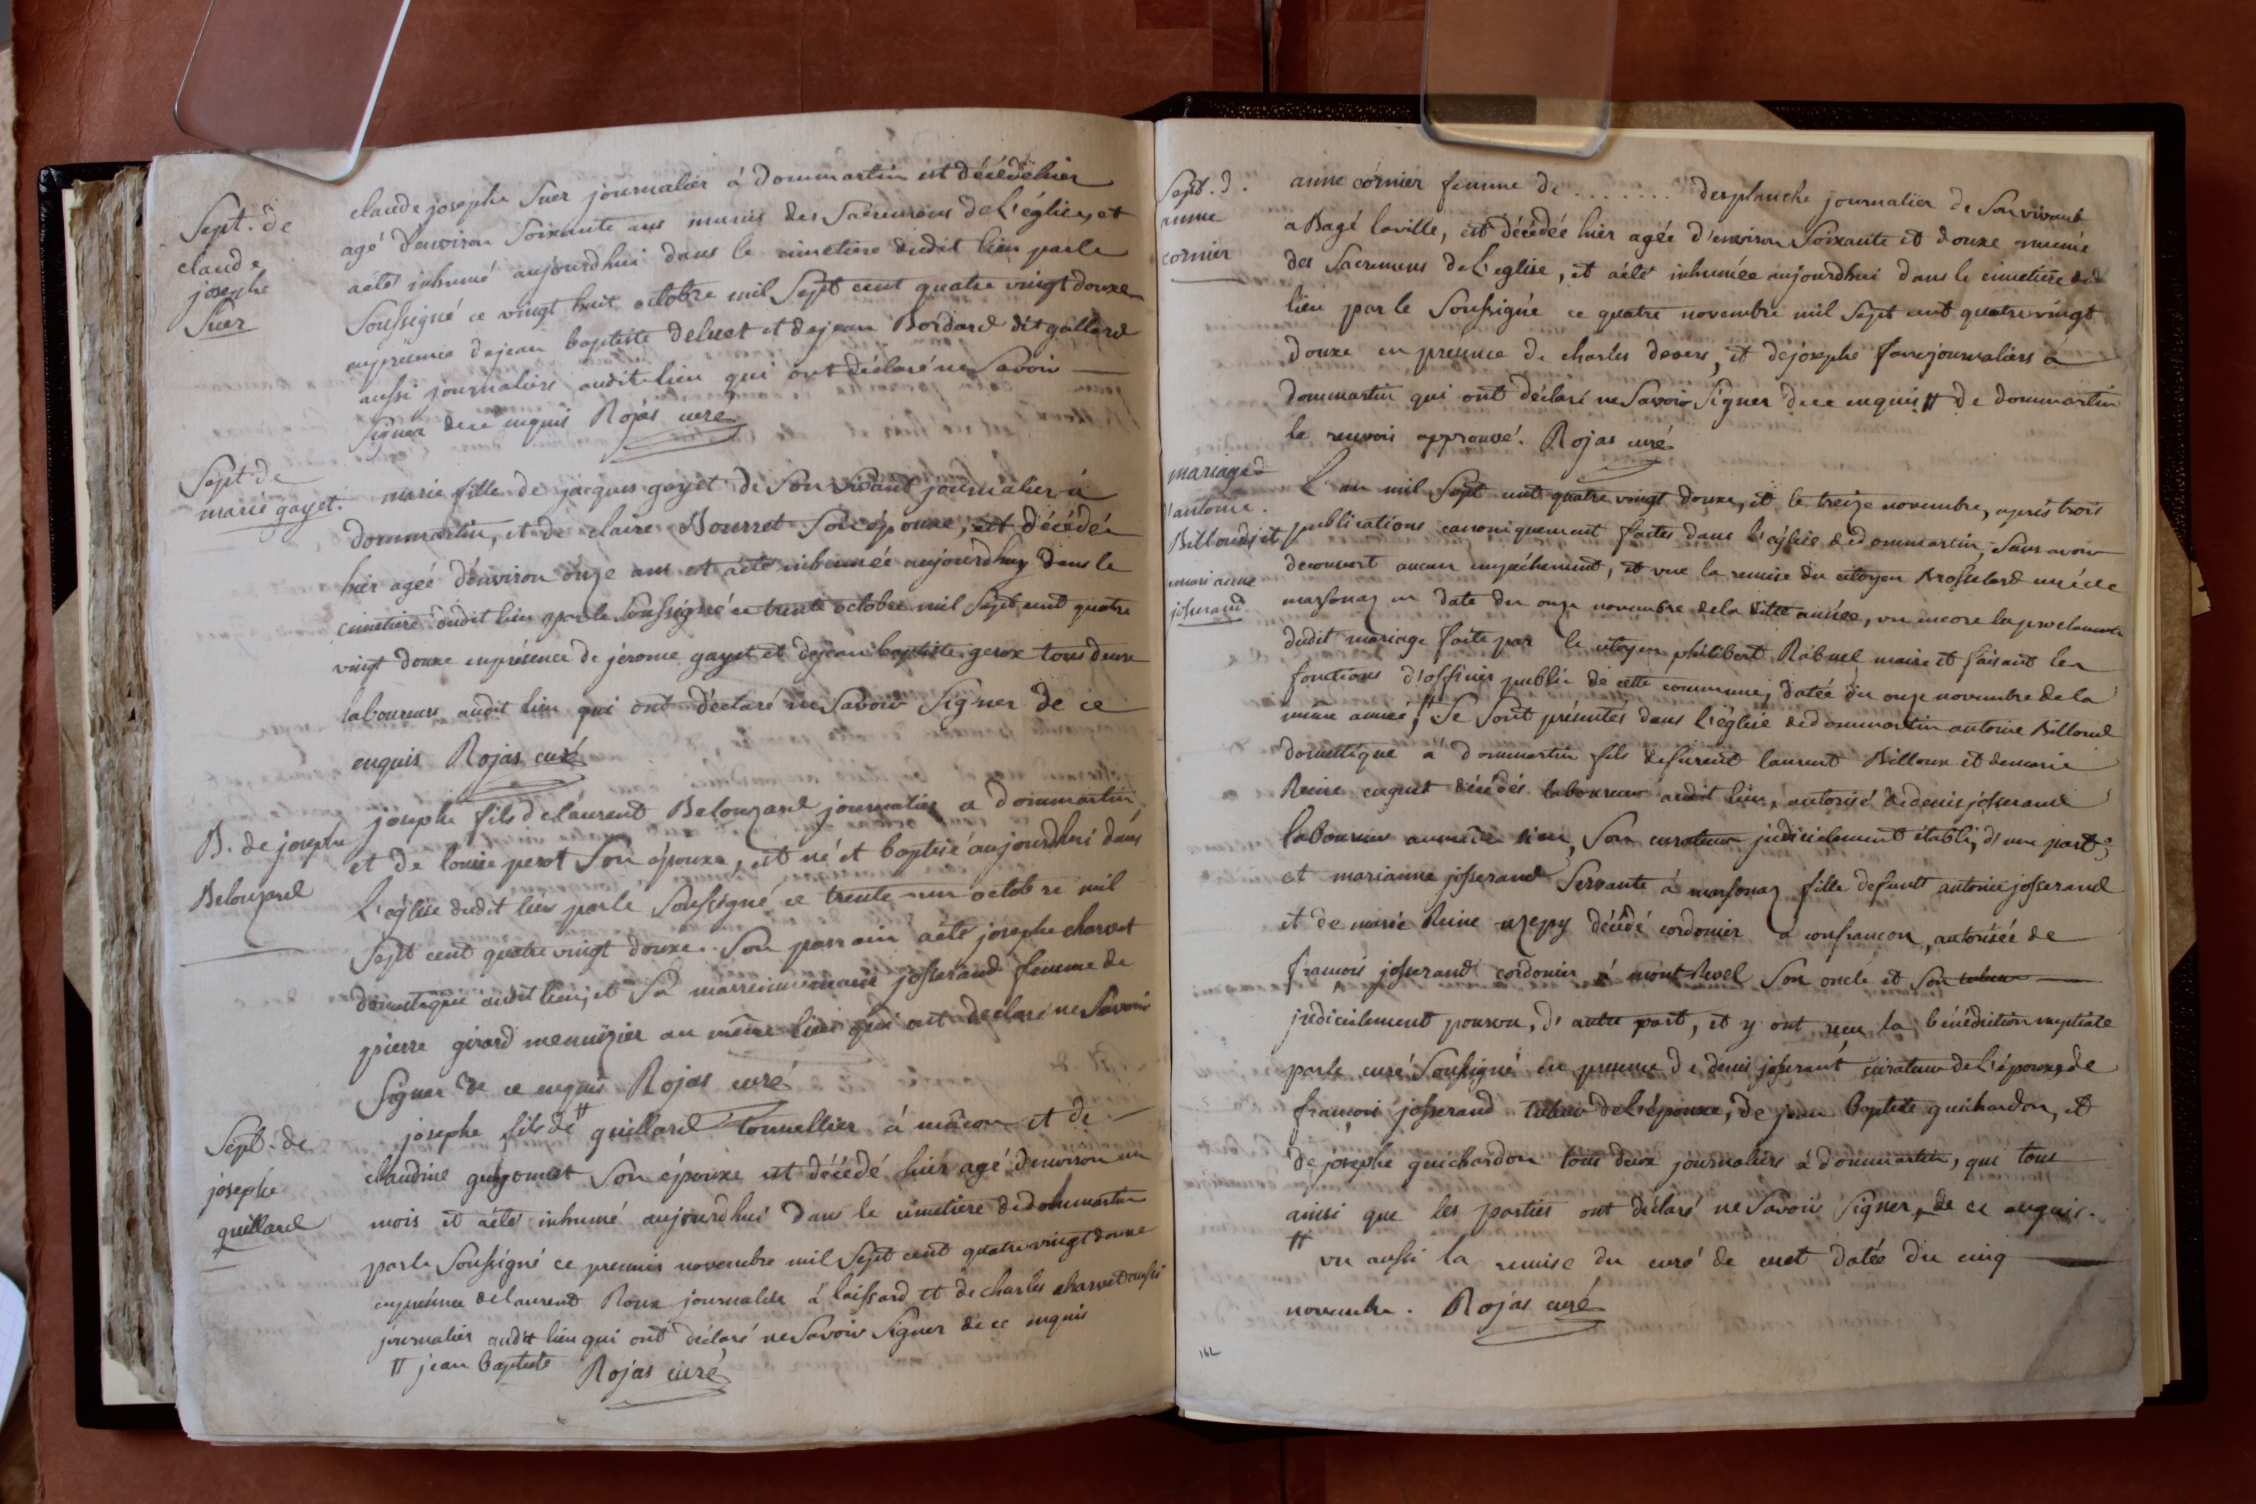 Sept. de
claude
josephe
Suer
claude josephe Suer journalier à dommartin est décédé hier
agé d'environ soixante ans munis des Sacremens de L'église, et
aété inhumé aujourdhui dans le cimetiere dudit lieu parle
Soussigné ce vingt huit octobre mil Sept cent quatre vingt douze
enprésence dejean baptiste deluet et dejean Bordard dit gallard
aussi journaliers audit lieu qui ont déclaré ne Savoir
Signer de ce enquis Rojas curé
Sept. de
marie gayet.
marie fille de jacques gayet de Son vivant journalier à
dommartin, et de claire Bourret Son épouse, est décédée
hier agée d'environ onze ans et aété inhumée aujourdhuy dans le
cimetiere dudit lieu parle Soussigné ce trente octobre mil Sept cent quatre
vingt douze enprésence de jerome gayet et dejean baptiste geroz tous deux
laboureurs audit lieu qui ont déclaré ne Savoir Signer de ce
enquis Rojas curé
B. de josephe
Belouzard
josephe fils delaurent Belouzard journalier a dommartin
et de louise perot Son épouse, est né et baptisé aujourdhui dans
L'église dudit lieu parle Soussigné ce trente un octobre mil
Sept cent quatre vingt douze. Son parrain aété josephe charvet
domestique audit lieu, et Sa marreine marie josserand femme de
pierre girard menuizier au même lieu qui ont declaré ne Savoir
Signer de ce enquis Rojas curé
Sept. de
josephe
guillard
josephe fils de # guillard tonnellier à mâcon et de
claudine guyonnet Son épouse est décédé hier agé d'environ un
mois et aété inhumé aujourdhui dans le cimetiere dedommartin
parle Soussigné ce premier novembre mil Sept cent quatre vingt douze
enprésence delaurent Roux journalier à loissard et de charles charvet aussi
journalier audit lieu qui ont déclaré ne Savoir Signer de ce enquis
# jean baptiste Rojas curé
Sept. d.
anne
cornier
anne cornier femme de ........ desplanche journalier de Son vivant
a Bagé laville, est décédée hier agée d'environ Soixante et douze munie
des Sacremens de L'eglise, et aété inhumée aujourdhui dans le cimetiere dud
lieu par le Soussigné ce quatre novembre mil Sept cent quatre vingt
douze en présence de charles devers, et dejosephe fare journaliers à
dommartin qui ont déclaré ne Savoir Signer de ce enquis # de dommartin
le renvois approuvé. Rojas curé
mariage
d'antoine
Billoud et
mari anne
josserand
L'an mil Sept cent quatre vingt douze, et le treize novembre, après trois
publications canoniquement faites dans l'église dedommartin, Sans avoir
decouvert aucun empéchement, et vue la remise du citoyen Brosselard curé de
marsonaz en date du onze novembre dela ditte année, vu encore la proclamation
dudit mariage faite par le citoyen philibert Rabuel maire et faisant les
fonctions d'officier public de cette commune, datée du onze novembre de la
même année, # Se Sont présentés dans l'église dedommartin antoine Billoud
domestique à dommartin fils defurent laurent Billoux et demarie
Reine cugnet décédés laboureurs audit lieu, autorisé dedenis josserand
laboureur aumême lieu, Son curateur judiciélement établi, d'une part,
et marianne josserand Servante à marsonaz fille defunt antoine josserand
et de marie Reine décédé cordonier a confrancon, autorisée de
françois josserand cordonier à mont Revel Son oncle et Son tuteur
judiciélement pourvu, d'autre part, et y ont reçu la bénédiction nuptiale
parle curé Soussigné en présence de denis josserant curateur de L'époux, de
françois josserand tuteur deL'épouse, de jean baptiste guichardon, et
de josephe guichardon tous deux journaliers à dommartin, qui tous
ainsi que les parties ont déclaré ne Savoir Signer, de ce enquis.
# vu aussi la remise du curé de cuet datée du cinq
novembre. Rojas curé
162